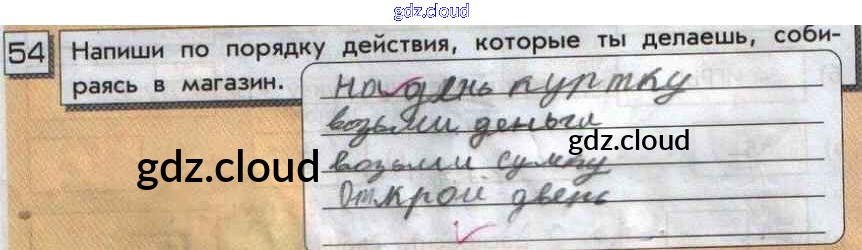 gdz.cloud
54 Напиши по порядку действия, которые ты делаешь, соби-
раясь в магазин.
надень куртку
возьми деньги
gdz.cloud
gdz.cloud
возьми сумку
Открой дверь